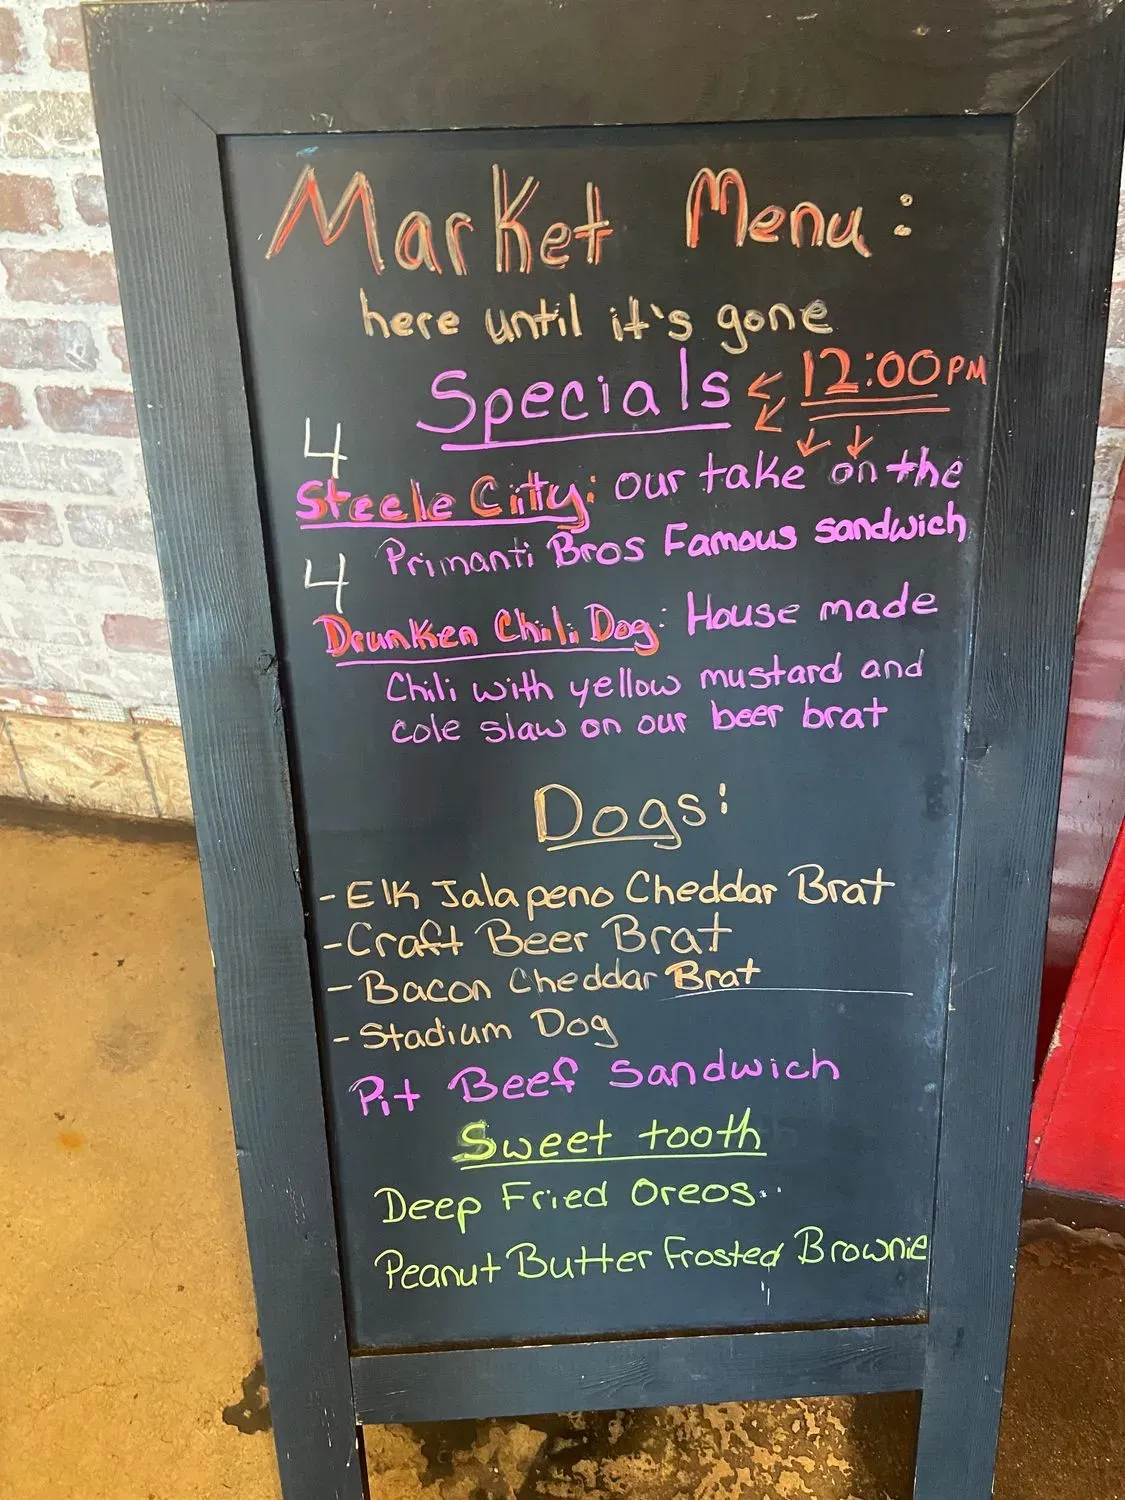 Market Menu:
here until it's gone
Specials 12:00PM
4
Steele Citty: our take on the
Primanti Bros Famous sandwich
4
Drunken Chili Dog: House made
Chili with yellow mustard and
cole slaw on our beer brat
Dogs:
- Elk Jalapeno Cheddar Brat
- Craft Beer Brat
- Bacon Cheddar Brat
- Stadium Dog
Pit Beef Sandwich
Sweet tooth
Deep Fried Oreos
Peanut Butter Frosted Brownie